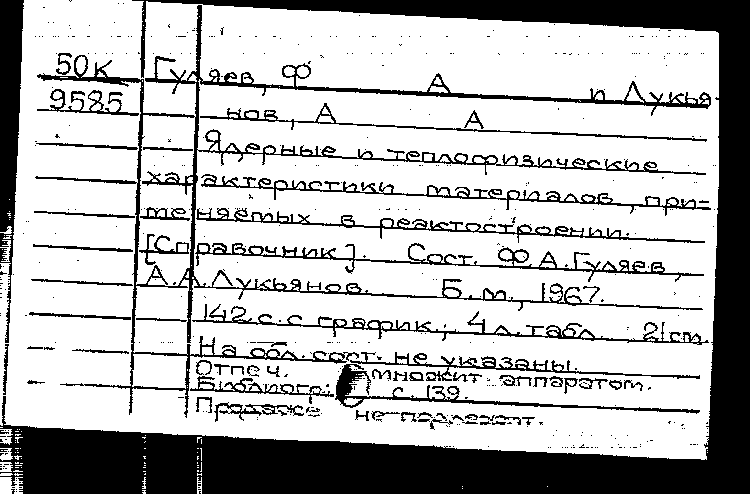 50К Гуляев, Ф А и Лукья
9585 нов, А А
Ядерные и теплофизические
характеристики материалов, при-
меняемых в реактостроении.
[Справочник]. Сост. Ф.А.Гуляев,
А.А.Лукьянов. Б.м., 1967.
142 с. с график.; 4 л. табл. 21 см.
На обл. сост. не указаны.
Отпеч. множит. аппаратом.
Библиогр.: с. 139.
Продаже не подлежит.